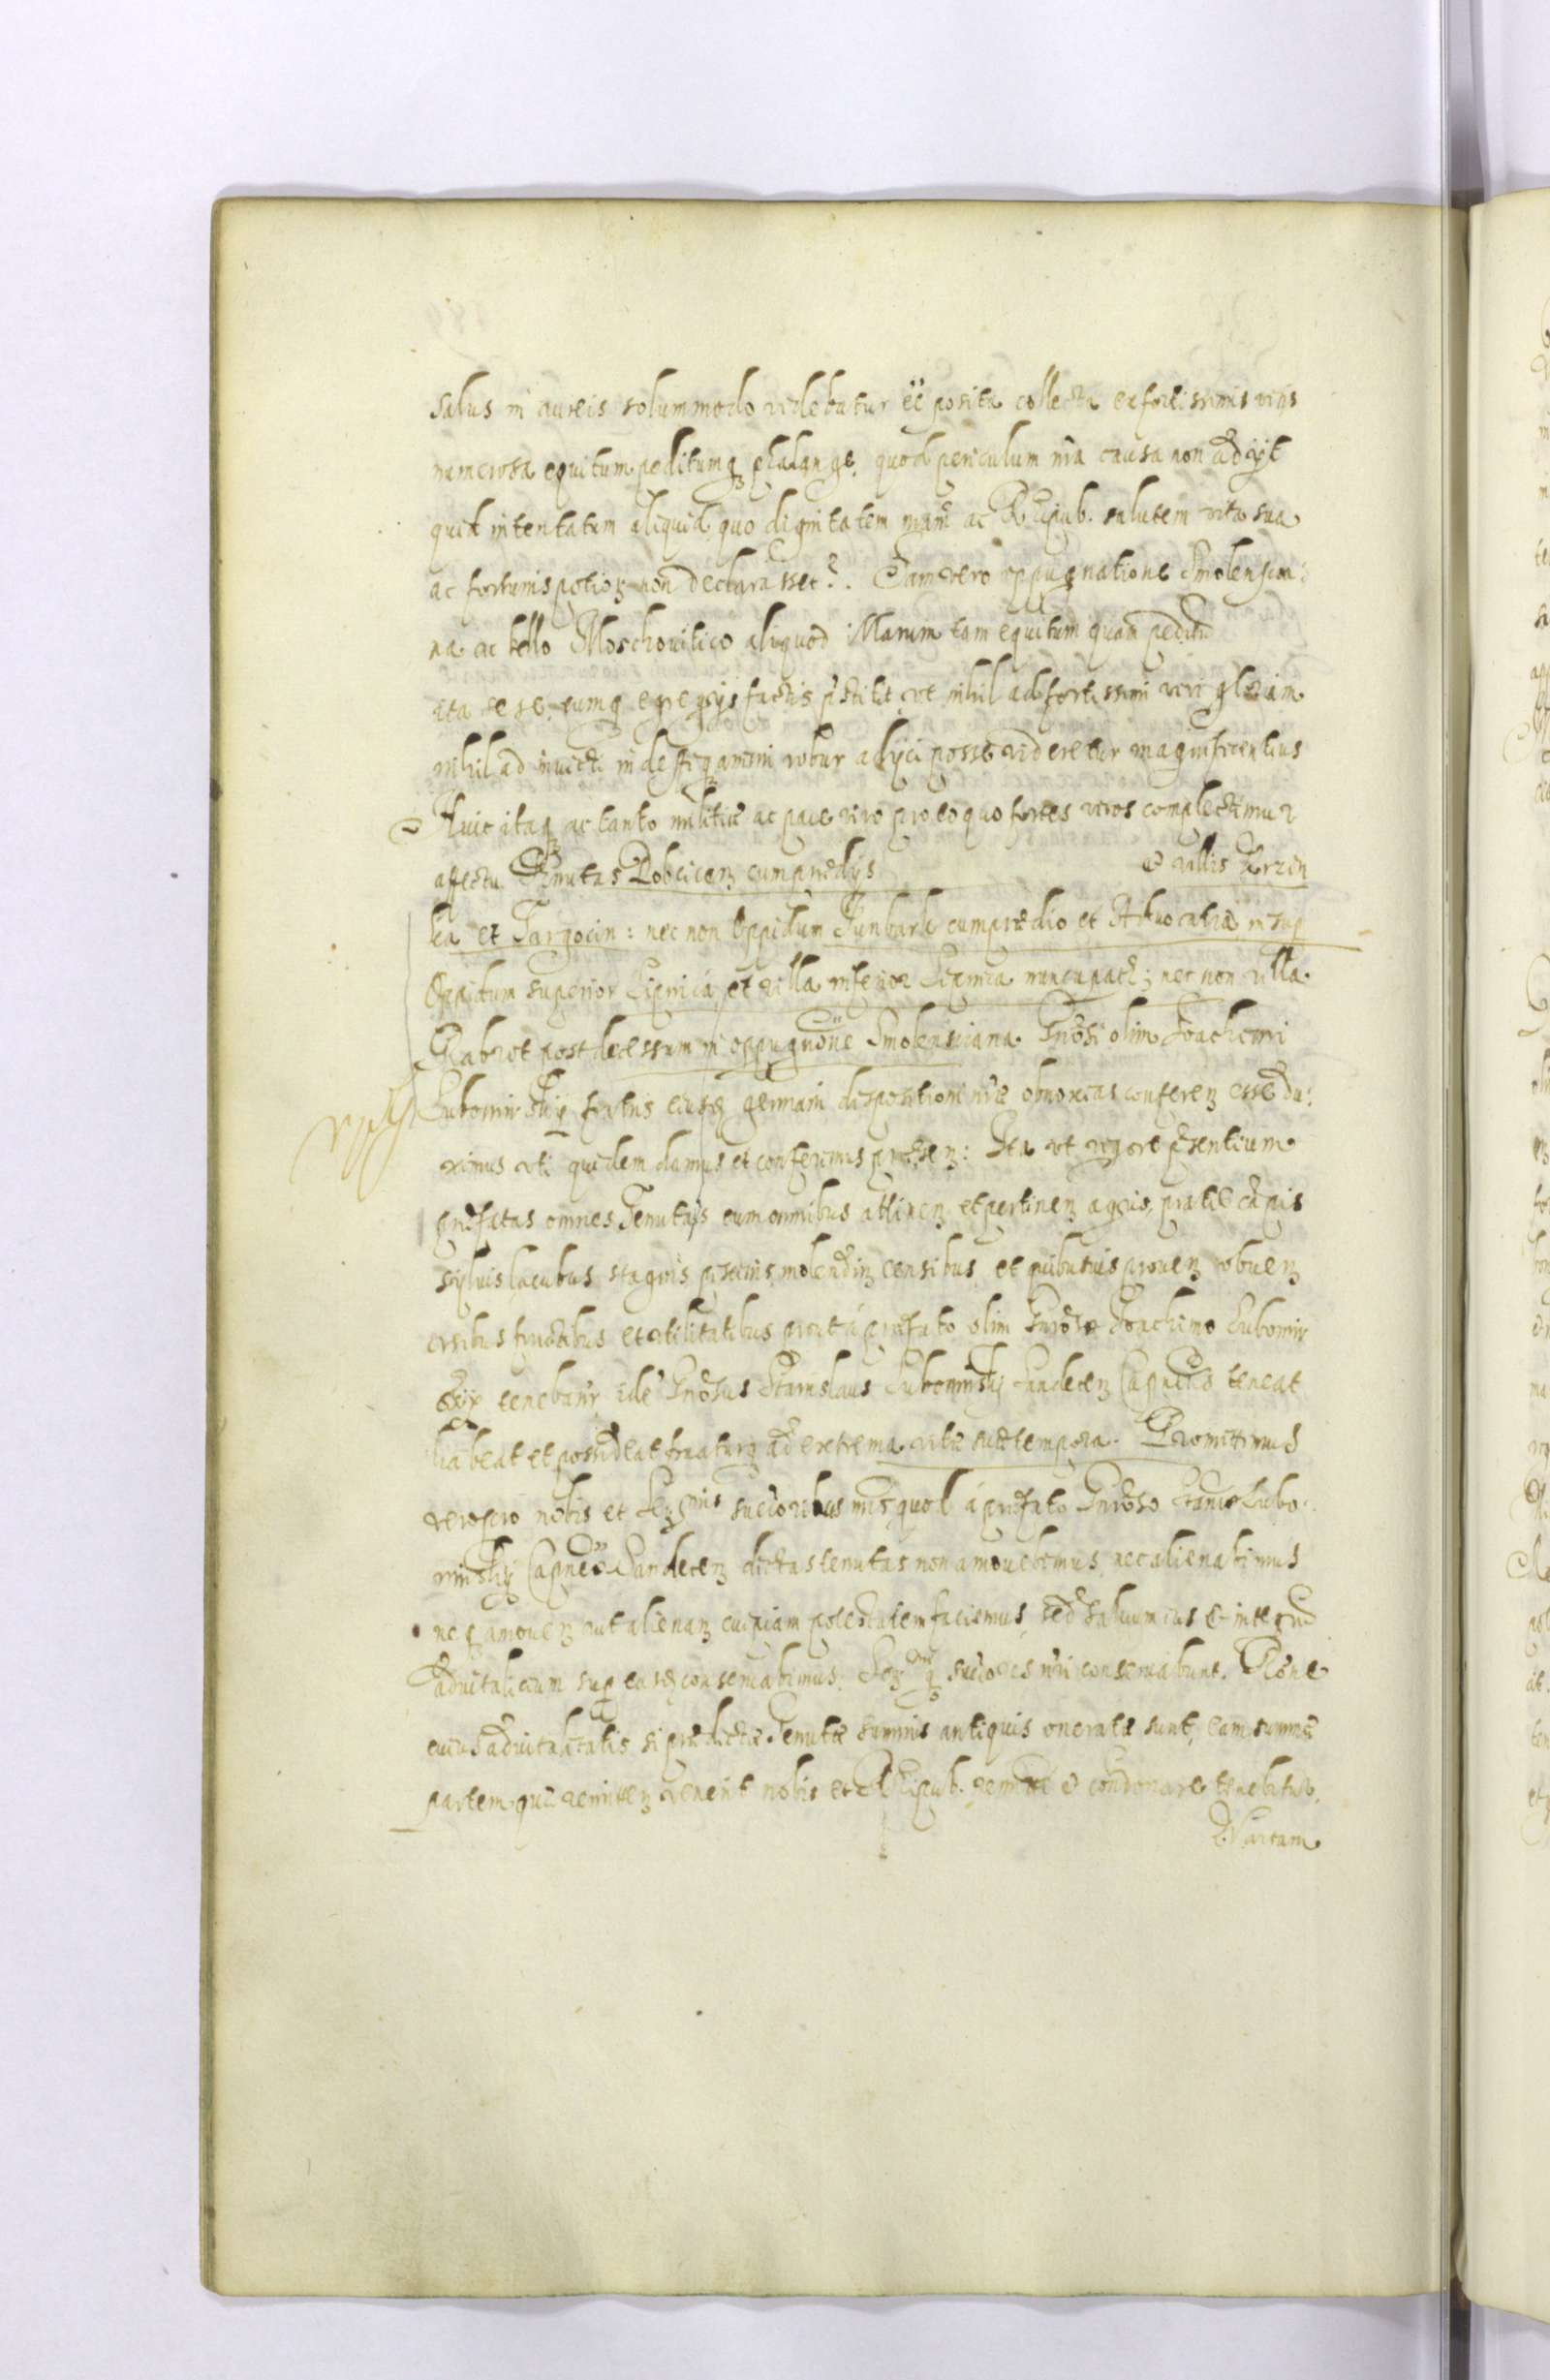 salus in aureis solummodo videbatur eē posita collecta ex fortissimis viris
numerosa equitum peditumq phalange, quod periculum nr̄a causa non adijt
quid intentatum aliquid quo dignitatem nr̄am ac Reipub. salutem vita sua
ac fortunis potior non declarasset? Iam vero oppugnatione Smolenscia:
na ac bello Moschovitico aliquod tam equitum quam peditū
ita se se eumq egregijs factis pstitit, vt nihil ad fortissimi viri gloriam
nihil ad invicti indefessiq animi robur adijci posse videretur magnificentius
Huic itaq ac tanto militiæ ac pace viro pro eo quo fortes viros complectimur
affectu Tenutas cum prædijs et villis Krzen
et Targocin: nec non Oppidum cum prædio et Advocatia
Oppidum superior Lipnica et villa inferior Lipnica nuncupat; nec non villa
post decessum in oppugnōne Smolensciana Gnōsi olim Joachimi
Lubomirskij fratris eiusd germani dispositioni nr̄æ obnoxias conferen esse du:
ximus vti quidem damus et conferimus præsen: Ita vt vigore pntium
præfatas omnes Tenutas cum omnibus attinen et pertinen agris, pratis cāpis
sylvis lacubus stagnis piscinis, molendin censibus et tributis proven obven
vsibus fructibus et vtilitatibus prout á præfato olim Gnōso Joachimo Lubomir
skij tenebantr idē Gnōsus Stanislaus Lubomirskij Sandecen Capneūs teneat
habeat et possideat fruaturq ad extrema vitæ suæ tempora. Promittimus
vero pro nobis et Ser̄mis succ̄oribus nr̄is quod á præfato Gnōso Stanis Lubo:
mirskij Capneō Sandecen dictas tenutas non amovebimus, nec alienabimus
neq amoven aut alienan cuipiam potestatem faciemus, sed salvum ius et integrū
advitalitium sup easd conservabimus. Ser̄miq succ̄ores nr̄i conservabunt. Rōne
cuius advitalitatis si prædictæ Tenutæ summis antiquis oneratæ sunt, eam summæ
partem quæ remitten venerit nobis et Reipub. remittere et condonare tenebitur.
Quartam